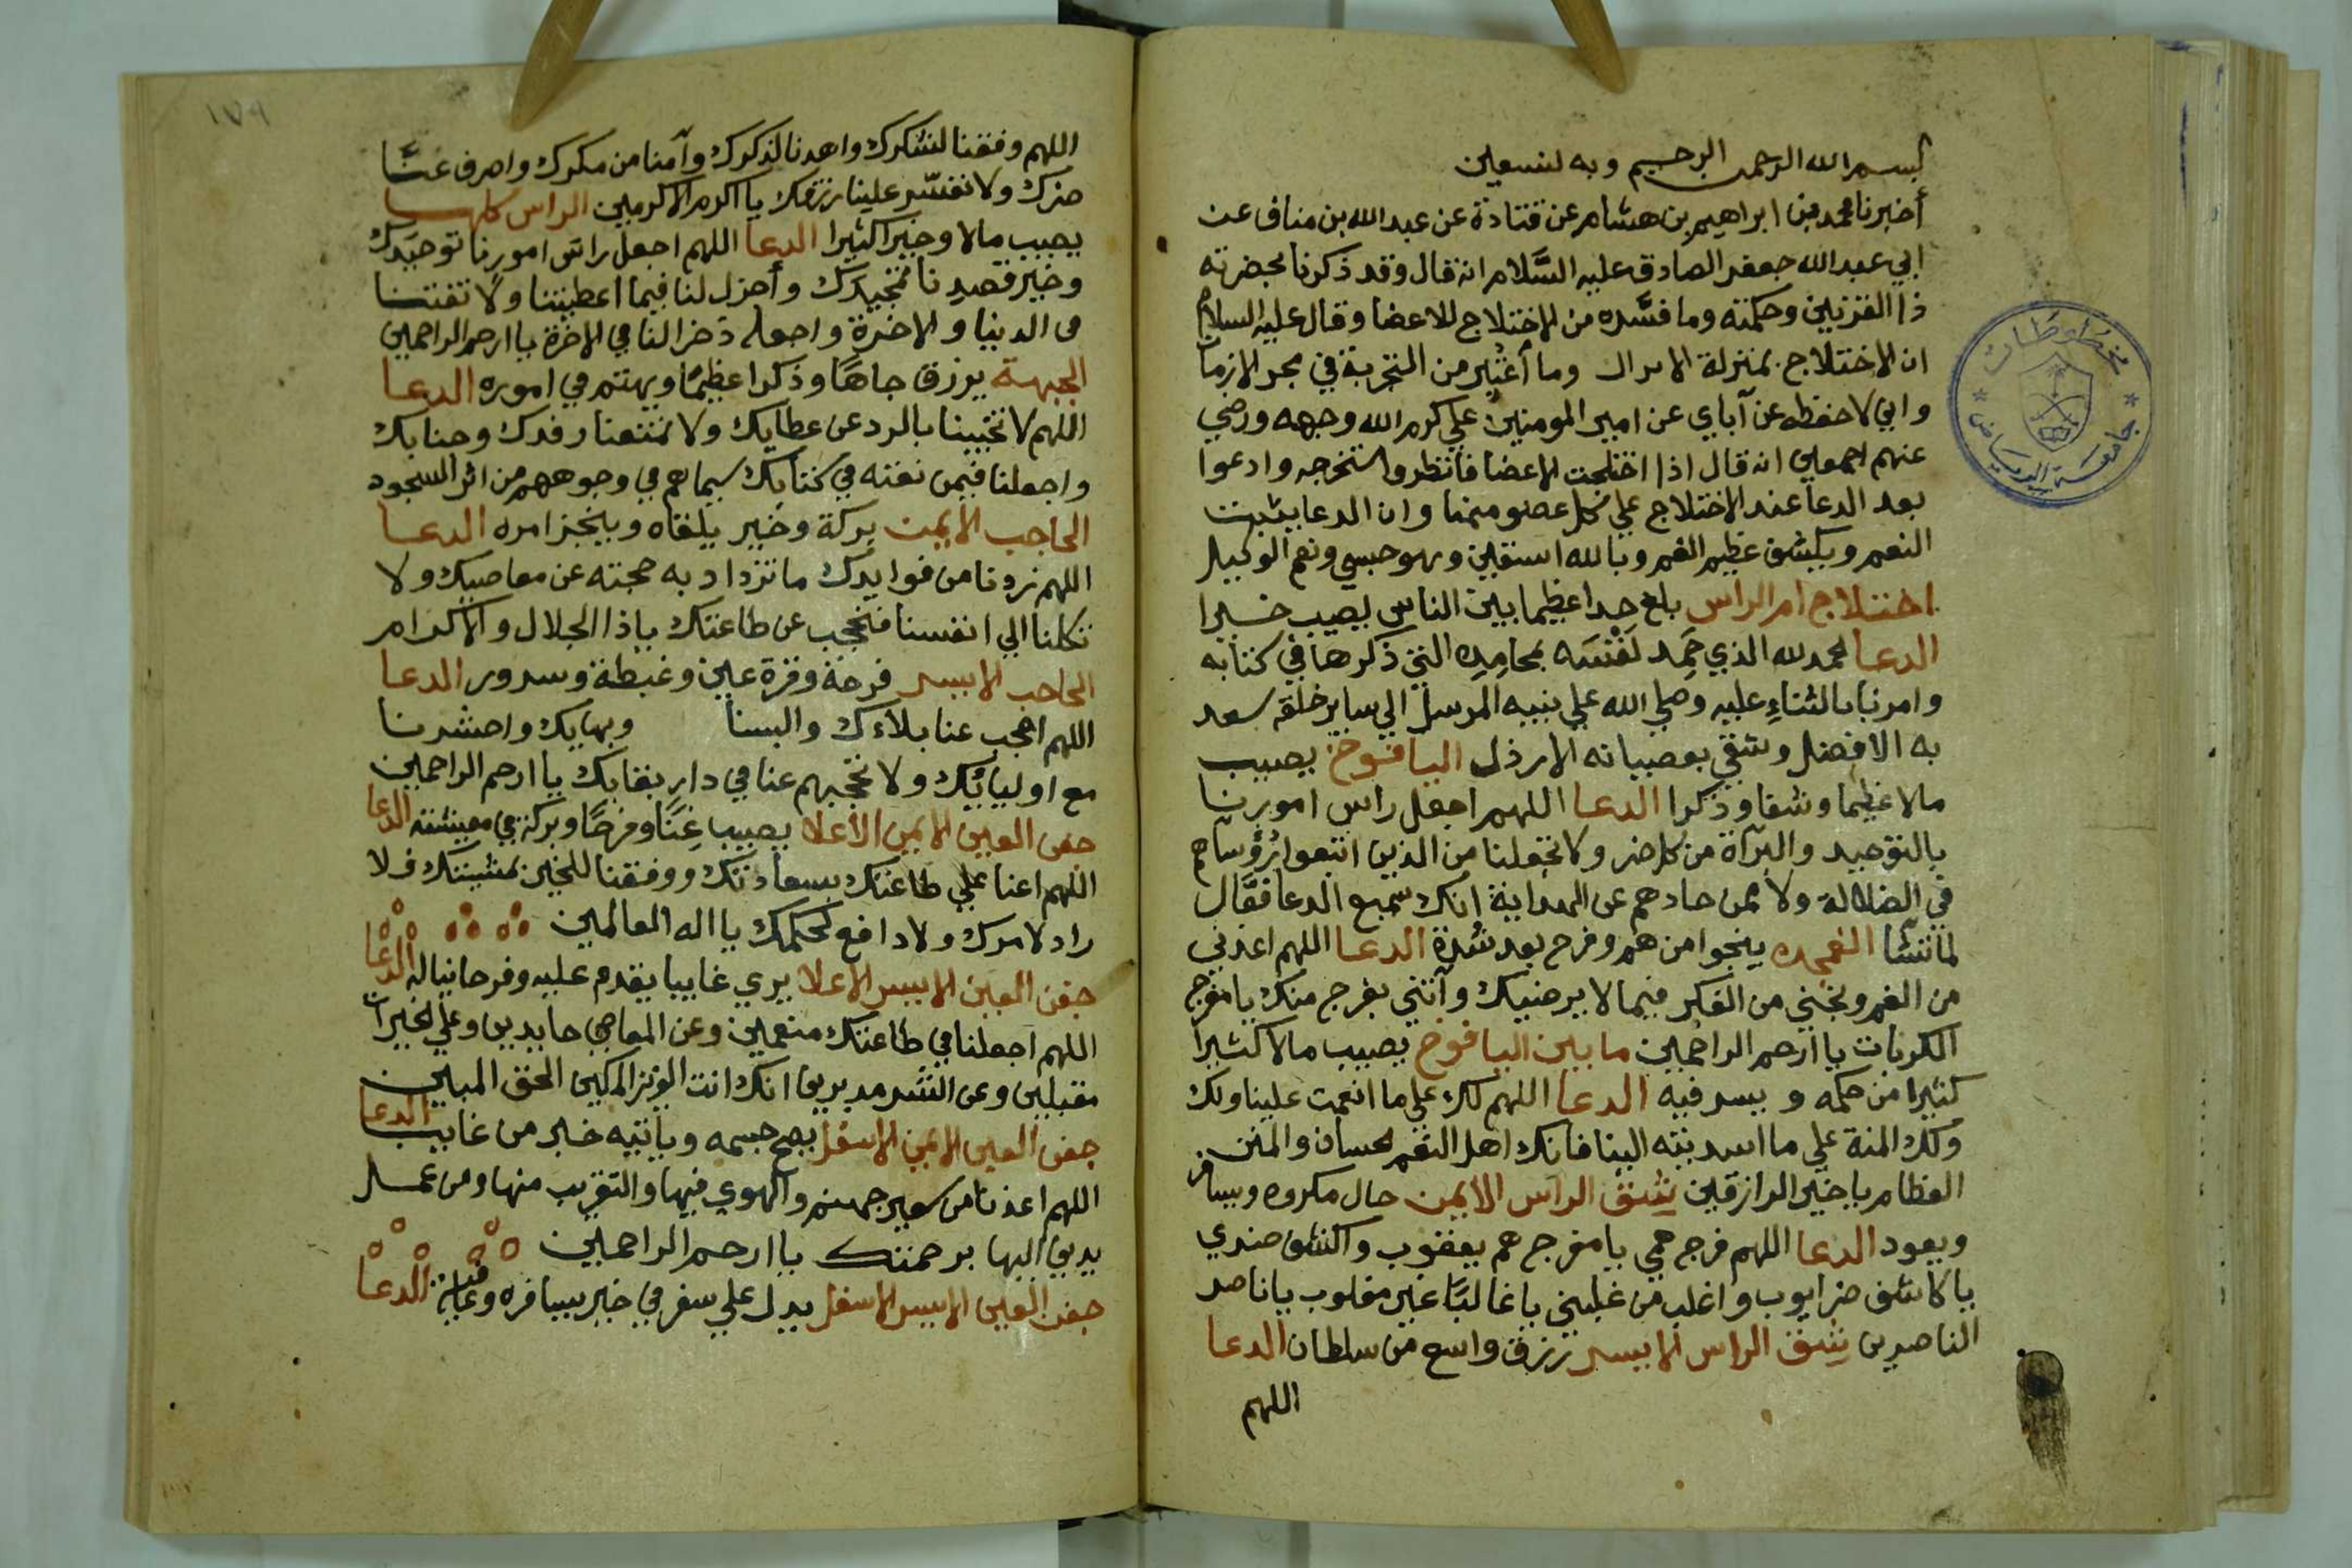 بسم الله الرحمن الرحيم وبه نستعين
أخبرنا محمد بن ابراهيم بن هشام عن قتادة عن عبد الله بن مناف عن
ابي عبد الله جعفر الصادق عليه السَّلام انه قال وقد ذكرنا بحضرته
ذا القرنين وحكمته وما فسَّره من الاختلاج للاعضا وقال عليه السلام
ان الاختلاج بمنزلة وما من التجربة في الازمان
واني لاحفظه عن آباي عن امير المومنين علي كرم الله وجهه ورضي
عنهم اجمعين انه قال اذا اختلجت الاعضا فانظروا ستخرجه وادعوا
بعد الدعا عند الاختلاج علي كل عضو منها وان الدعا يثبت
النعم ويكشف عظيم الغم وبالله استعين وهو حسبي ونعم الوكيل
اختلاج ام الراس بلغ حدا عظيما بين الناس يصيب خيرا
الدعا الحمد لله الذي حَمِد لنفسه بمحامِدِه التي ذكرها في كتابه
وامرنا بالثناءِ عليه وصلي الله علي نبيه المرسل الي ساير خلقه سعد
به الافضل وشقي بعصيانه الارذل اليافوخ يصيب
مالا عظيما وشقا وذكرا الدعا اللهم اجعل راس امورنا
بالتوحيد والبرآة من كل ضر ولا تجعلنا من الذين اتبعوا رُؤساهم
في الضلالة ولا ممن حادهم عن الهداية إنك سميع الدعا فعَّال
لما تشآ القمحده ينجوا من هم وفرح بعد شدة الدعا اللهم اعذني
من الغم ونجني من الفكر فيما لا يرضيك وآتني بفرج منك يا مفرج
الكربات يا ارحم الراحمين ما بين اليافوخ يصيب مالا كثيرا
كثيرا من حكمه ويسر فيه الدعا اللهم لك علي ما انعمت علينا ولك
ولك المنة علي ما اسديته الينا فانك اهل النعم لحسان والمنن
العظام يا خير الرازقين شِق الراس الايمن حال مكروه ويسافر
ويعود الدعا اللهم فرج همي يا مفرج هم يعقوب واكشف ضري
يا كاشف ضر ايوب واغلب من غلبني يا غالبًا غير مغلوب يا ناصر
الناصرين شِق الراس الايسر رزق واسع من سلطان الدعا
اللهم
١٧٩
اللهم وفقنا لشكرك واهدنا لذكرك وآمنا من مكرك واصرف عنَّا
ضرك ولا تقتّر علينا رزقك يا اكرم الاكرمين الراس كلها
يصيب مالا وخيرا كثيرا الدعا اللهم اجعل راس امورنا توحيدك
وخير قصدنا تمجيدك وأجزل لنا فيما اعطيتنا ولا تفتنا
في الدنيا والاخرة واجعله ذخرا لنا في الاخرة يا ارحم الراحمين
الجبهة يرزق جاهًا وذكرا عظيمًا ويهتم في اموره الدعا
اللهم لا تخيبنا بالرد عن عطايك ولا تمنعنا رفدك وجنابك
واجعلنا فيمن نعته في كتابك سيماهم في وجوههم من اثر السجود
الحاجب الايمن بركة وخير يلقاه وينجز امره الدعا
اللهم زدنا من فوايدك ما نزداد به حجته عن معاصيك ولا
تكلنا الي انفسنا فنحجب عن طاعتك يا ذا الجلال والاكرام
الحاجب الايسر فرحة وقرة عين وغبطة وسرور الدعا
اللهم احجب عنا بلآءك والبسنا وبهايك واحشرنا
مع اوليائِك ولا تحجبهم عنا في دار بقايك يا ارحم الراحمين
جفن العين الايمن الأعلا يصيب غِنًا وفرحًا وبركة في معيشته الدعا
اللهم اعنا علي طاعتك بسعادتك ووفقنا للخير بمشيتك فلا
راد لامرك ولا دافع لحكمك يا اله العالمين
جفن العين الايسر الاعلا يري غايبا يقدم عليه وفرحا يناله الدعا
اللهم اجعلنا في طاعتك منعمين وعن المعاصي حايدين وعلي الخيرات
مقبلين وعن الشر مدبرين انك انت العزيز الحق المبين
جفن العين الايمن الاسفل يصح جسمه وياتيه خبر من غايب الدعا
اللهم اعذنا من سعير جهنم والهوي فيها والتقريب منها ومن عمل
يدني اليها برحمتك يا ارحم الراحمين
جفن العين الايسر الاسفل يدل علي سفر في خير يسافره الدعا
مخطوطات
جامعة الرياض